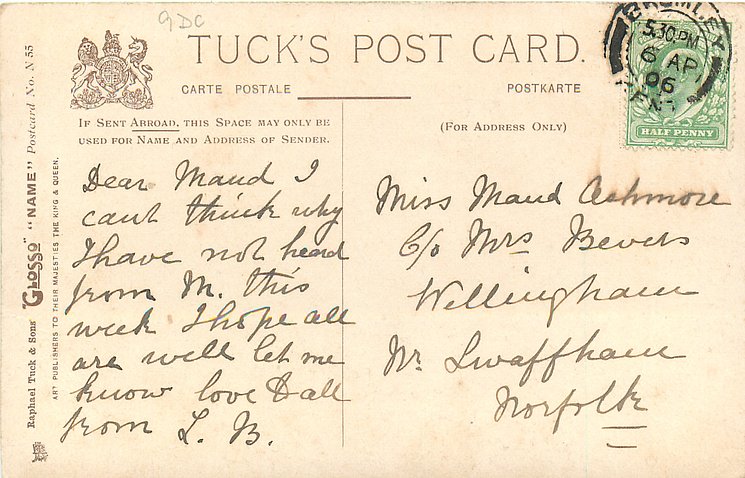 9DC
TUCK'S POST CARD.
CARTE POSTALE
POSTKARTE
IF SENT ABROAD, THIS SPACE MAY ONLY BE
USED FOR NAME AND ADDRESS OF SENDER.
(FOR ADDRESS ONLY)
BROMLEY
5.30 PM
6 AP
06
KENT
HALF PENNY
Dear Maud I
cant think why
I have not heard
from M. this
week I hope all
are well let me
know love to all
from L. B.
Miss Maud Ashmore
C/o Mrs Bevers
Wellingham
Nr. Swaffham
Norfolk
Raphael Tuck & Sons' "GLOSSO" "NAME" Postcard No. N 55
ART PUBLISHERS TO THEIR MAJESTIES THE KING & QUEEN.